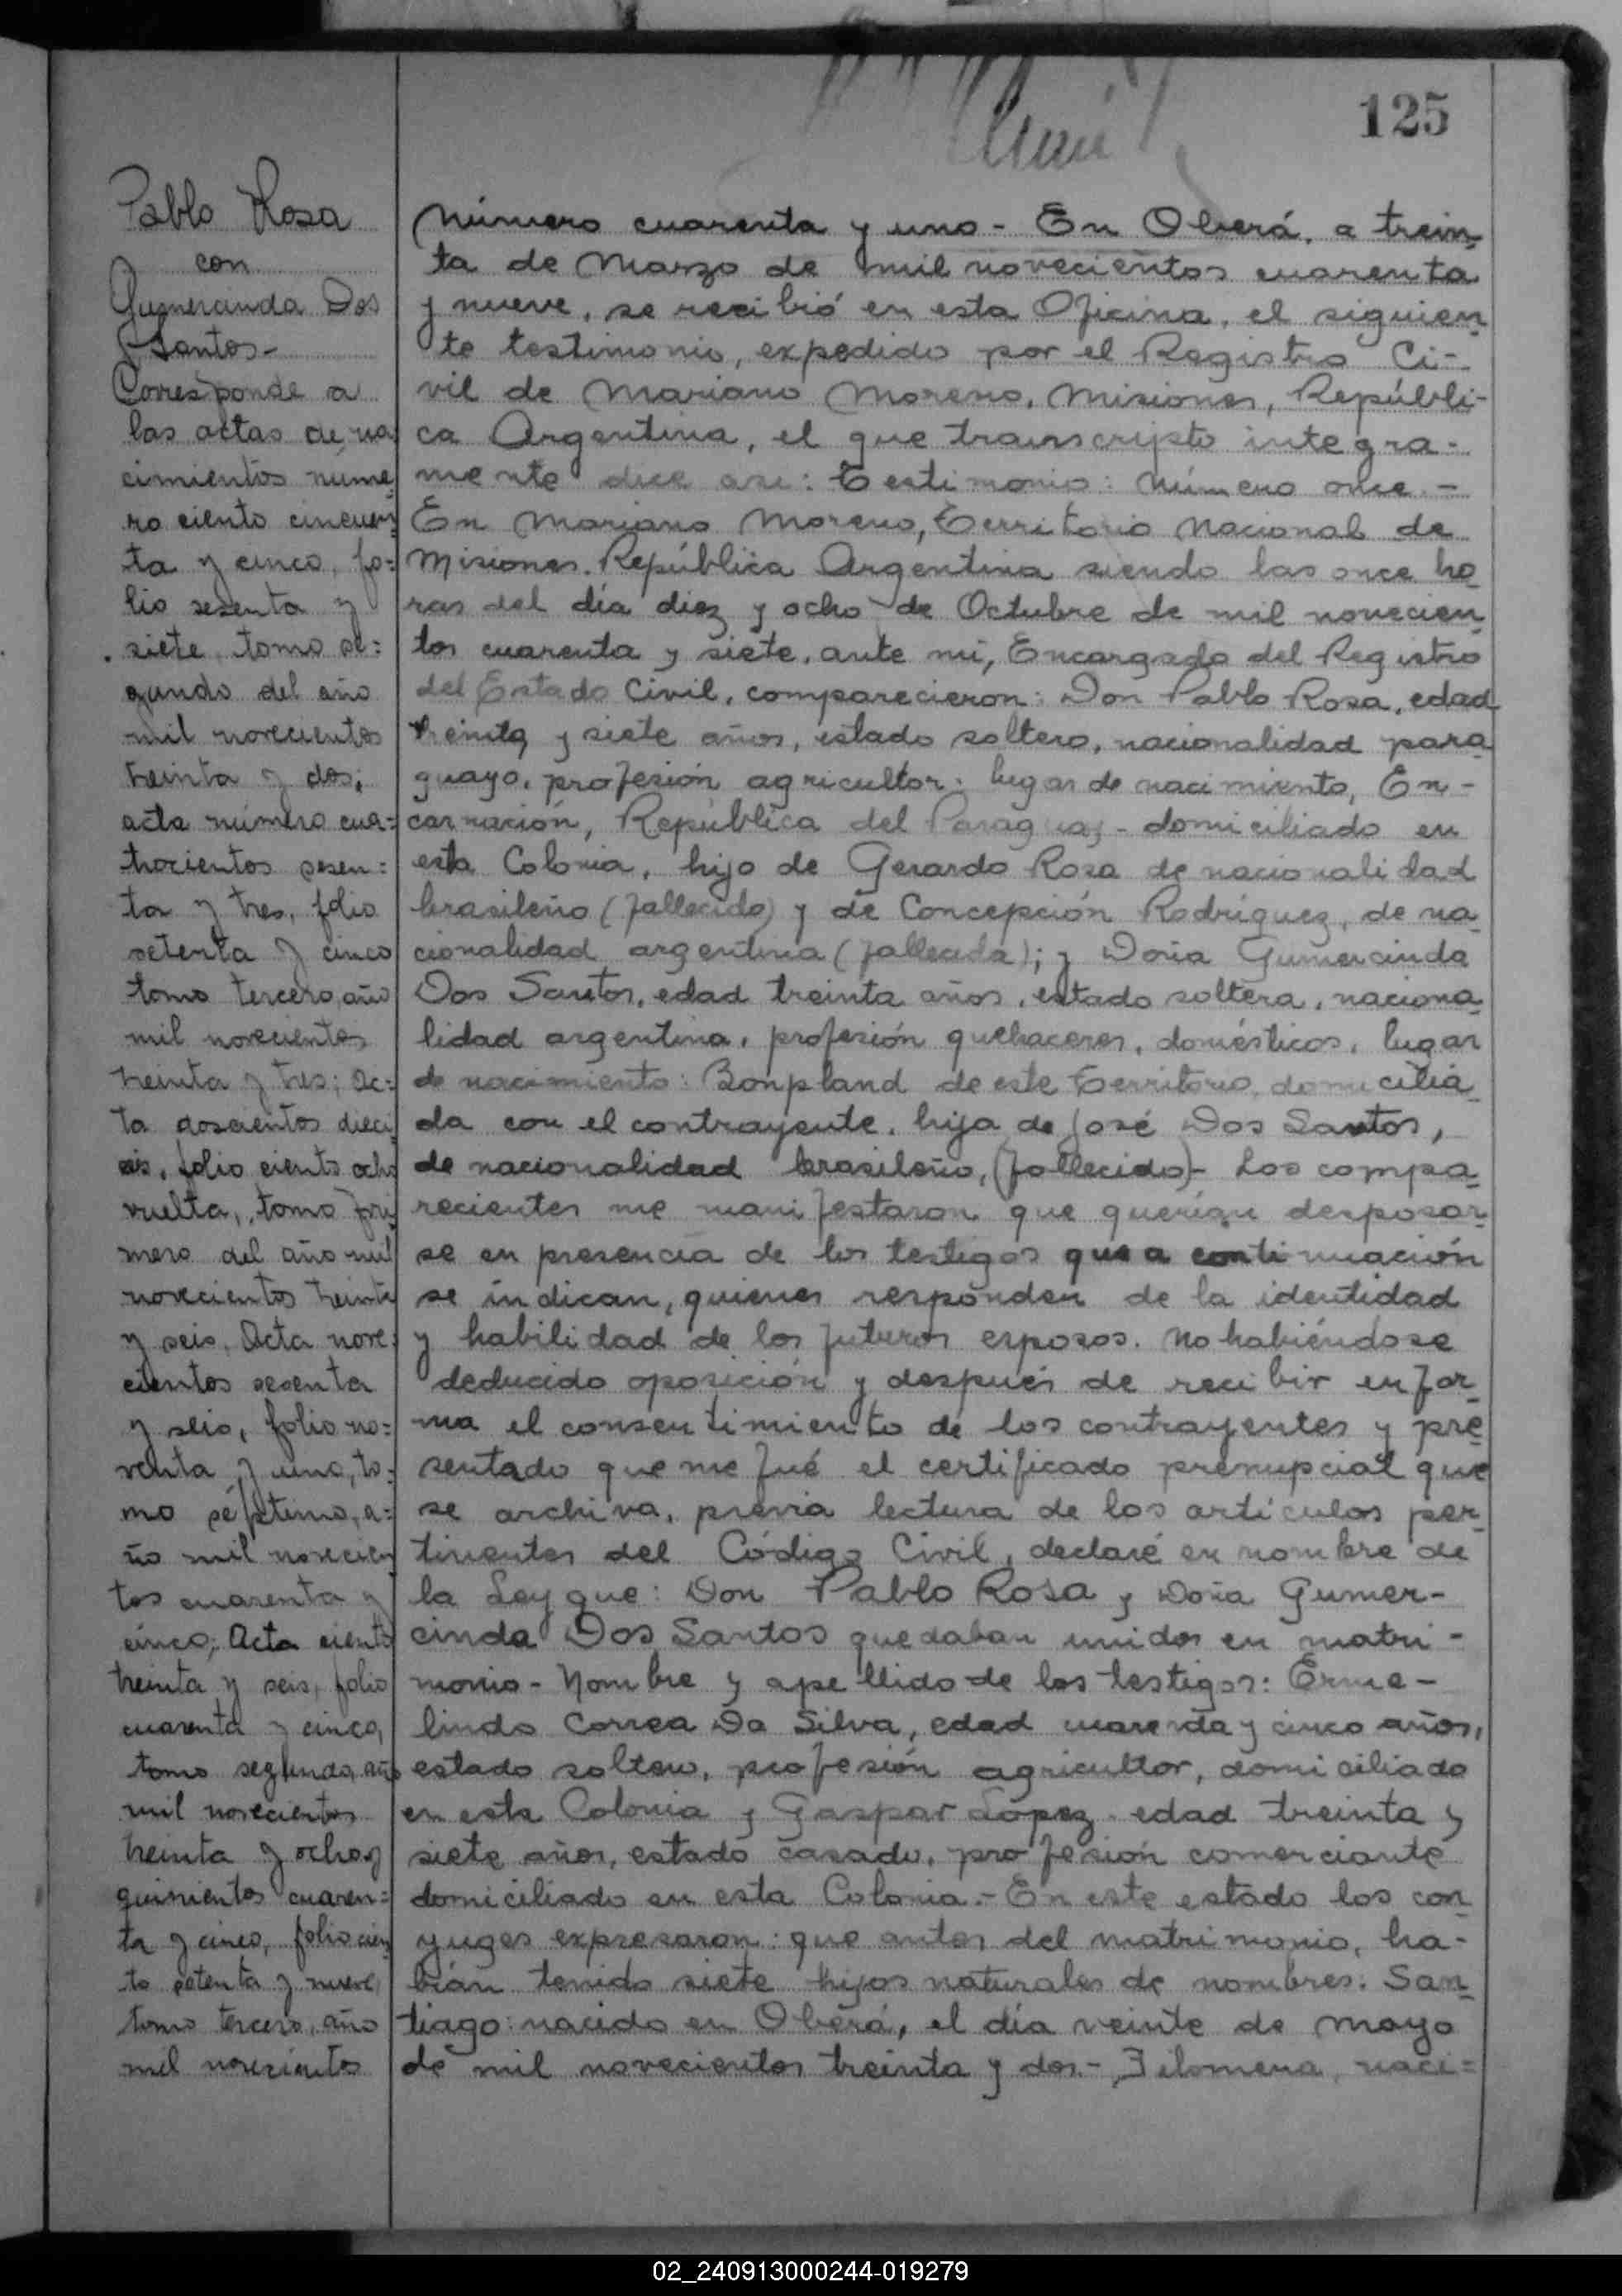 125
Pablo Rosa
con
Gumeranda Dos
Santos-
Corresponde a
las actas de na
cimientos núme=
ro ciento cincuen=
ta y cinco, fo=
lio sesenta y
siete, tomo se=
gundo del año
mil novecientos
treinta y dos;
acta número cua=
trocientos sesen=
ta y tres, folio
setenta y cinco
tomo tercero, año
mil novecientos
treinta y tres; ac=
ta doscientos dieci
seis, folio ciento ocho
vuelta, tomo pri
mero del año mil
novecientos treinta
y seis, Acta nove=
cientos sesenta
y seis, folio no=
venta y uno, to=
mo séptimo, a=
ño mil novecien
tos cuarenta y
cinco; Acta ciento
treinta y seis, folio
cuarenta y cinco,
tomo segundo, año
mil novecientos
treinta y ocho y
quinientos cuaren=
ta y cinco, folio cien
to setenta y nueve,
tomo tercero, año
mil novecientos
Número cuarenta y uno - En Oberá, a trein-
ta de Marzo de mil novecientos cuarenta
y nueve, se recibió en esta Oficina, el siguien-
te testimonio, expedido por el Registro Ci-
vil de Mariano Moreno, Misiones, Repúbli-
ca Argentina, el que transcripto integra-
mente dice asi: Testimonio: Número once.-
En Mariano Moreno, Territorio Nacional de
Misiones. República Argentina siendo las once ho-
ras del día diez y ocho de Octubre de mil novecien-
tos cuarenta y siete, ante mi, Encargado del Registro
del Estado Civil, comparecieron: Don Pablo Rosa, edad
treinta y siete años, estado soltero, nacionalidad para-
guayo, profesión agricultor: lugar de nacimiento, En-
carnación, República del Paraguay - domiciliado en
esta Colonia, hijo de Gerardo Rosa de nacionalidad
brasileño (fallecido) y de Concepción Rodríguez, de na-
cionalidad argentina (fallecida); y Doña Gumercinda
Dos Santos, edad treinta años, estado soltera, naciona-
lidad argentina, profesión quehaceres, domésticos, lugar
de nacimiento: Bonpland de este Territorio, domicilia-
da con el contrayente, hija de José Dos Santos,
de nacionalidad brasileño, (fallecido)- Los compa-
recientes me manifestaron que querían desposar-
se en presencia de los testigos que a continuación
se indican, quienes responden de la identidad
y habilidad de los futuros esposos. No habiéndose
deducido oposición y después de recibir en for-
ma el consentimiento de los contrayentes y pre-
sentado que me fué el certificado prenupcial que
se archiva, previa lectura de los artículos per-
tinentes del Código Civil, declaré en nombre de
la Ley que: Don Pablo Rosa y Doña Gumer-
cinda Dos Santos quedaban unidos en matri-
monio - Nombre y apellido de los testigos: Erme-
lindo Correa Da Silva, edad cuarenta y cinco años,
estado soltero, profesión agricultor, domiciliado
en esta Colonia y Gaspar López edad treinta y
siete años, estado casado, profesión comerciante
domiciliado en esta Colonia.- En este estado los con-
yuges expresaron: que antes del matrimonio, ha-
bían tenido siete hijos naturales de nombres: San-
tiago: nacido en Oberá, el día veinte de mayo
de mil novecientos treinta y dos.- Filomena, naci=
02_240913000244-019279